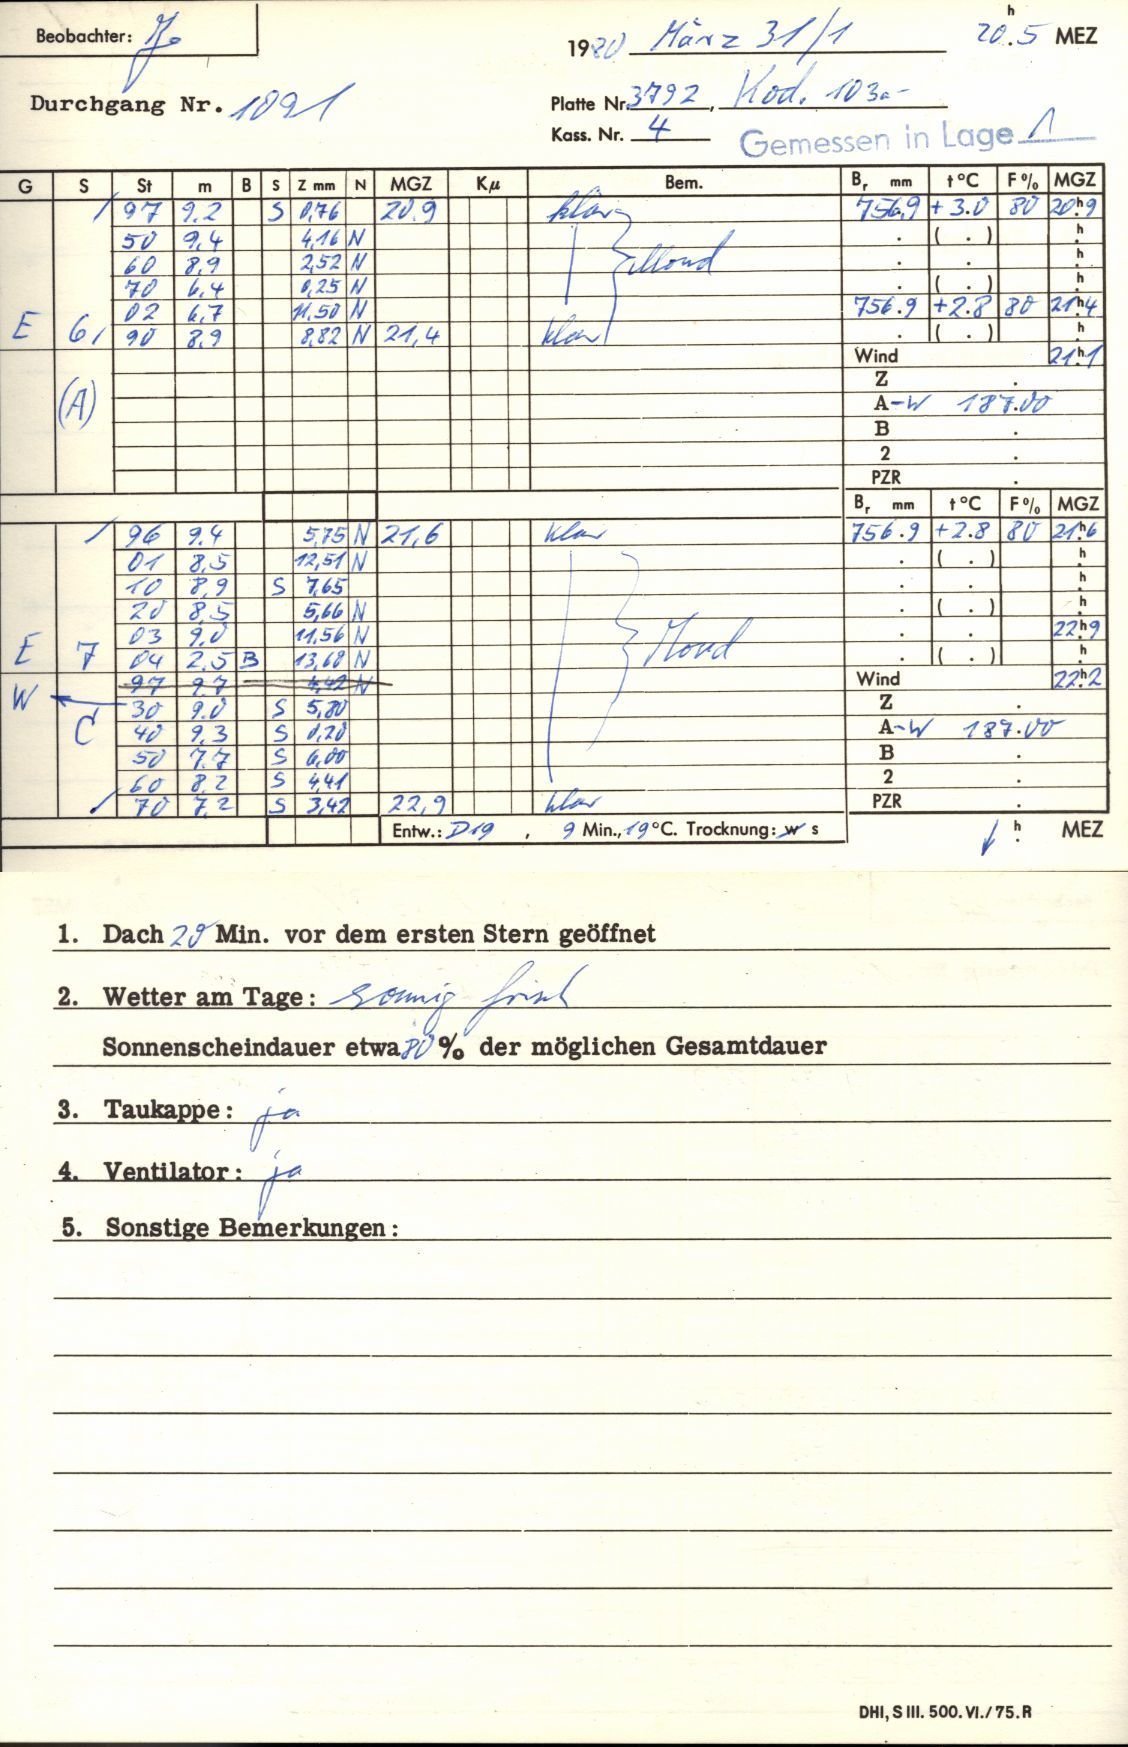 Beobachter: Jo
1980 März 31/1 20h.5 MEZ
Durchgang Nr. 1091
Platte Nr. 3792, Kod. 103a-
Kass. Nr. 4 Gemessen in Lage 1
G S St m B S Z mm N MGZ Kμ Bem. Br mm t °C F % MGZ
97 9.2 S 0,76 20.9 klar 756.9 +3.0 80 20h9
50 9.4 4,16 N . ( . ) h
60 8,9 2,52 N Mond . . h
70 6,4 0,25 N . ( . ) h
02 6,7 11,50 N 756.9 +2.8 80 21h4
E 6 90 8,9 8,82 N 21,4 klar . ( . ) h
Wind 21h1
(A) Z .
A-W 187.00
B .
2 .
PZR .
Br mm t °C F % MGZ
96 9.4 5,75 N 21,6 klar 756.9 +2.8 80 21h6
01 8,5 12,51 N . ( . ) h
10 8,9 S 7,65 . . h
20 8,5 5,66 N . ( . ) h
03 9.0 11,56 N . . 22h9
E 7 04 2,5 B 13,68 N Mond . ( . ) h
W 97 9.7 4,42 N Wind 22h2
C 30 9.0 S 5,80 Z .
40 9,3 S 0,20 A-W 187.00
50 7.7 S 6,00 B .
60 8,2 S 4,41 2 .
70 7,2 S 3,42 22,9 klar PZR .
Entw.: D19 , 9 Min., 19 °C. Trocknung: w s h . MEZ
1. Dach 20 Min. vor dem ersten Stern geöffnet
2. Wetter am Tage: sonnig frisch
Sonnenscheindauer etwa 80 % der möglichen Gesamtdauer
3. Taukappe: ja
4. Ventilator: ja
5. Sonstige Bemerkungen:
DHI, S III. 500. VI. / 75. R